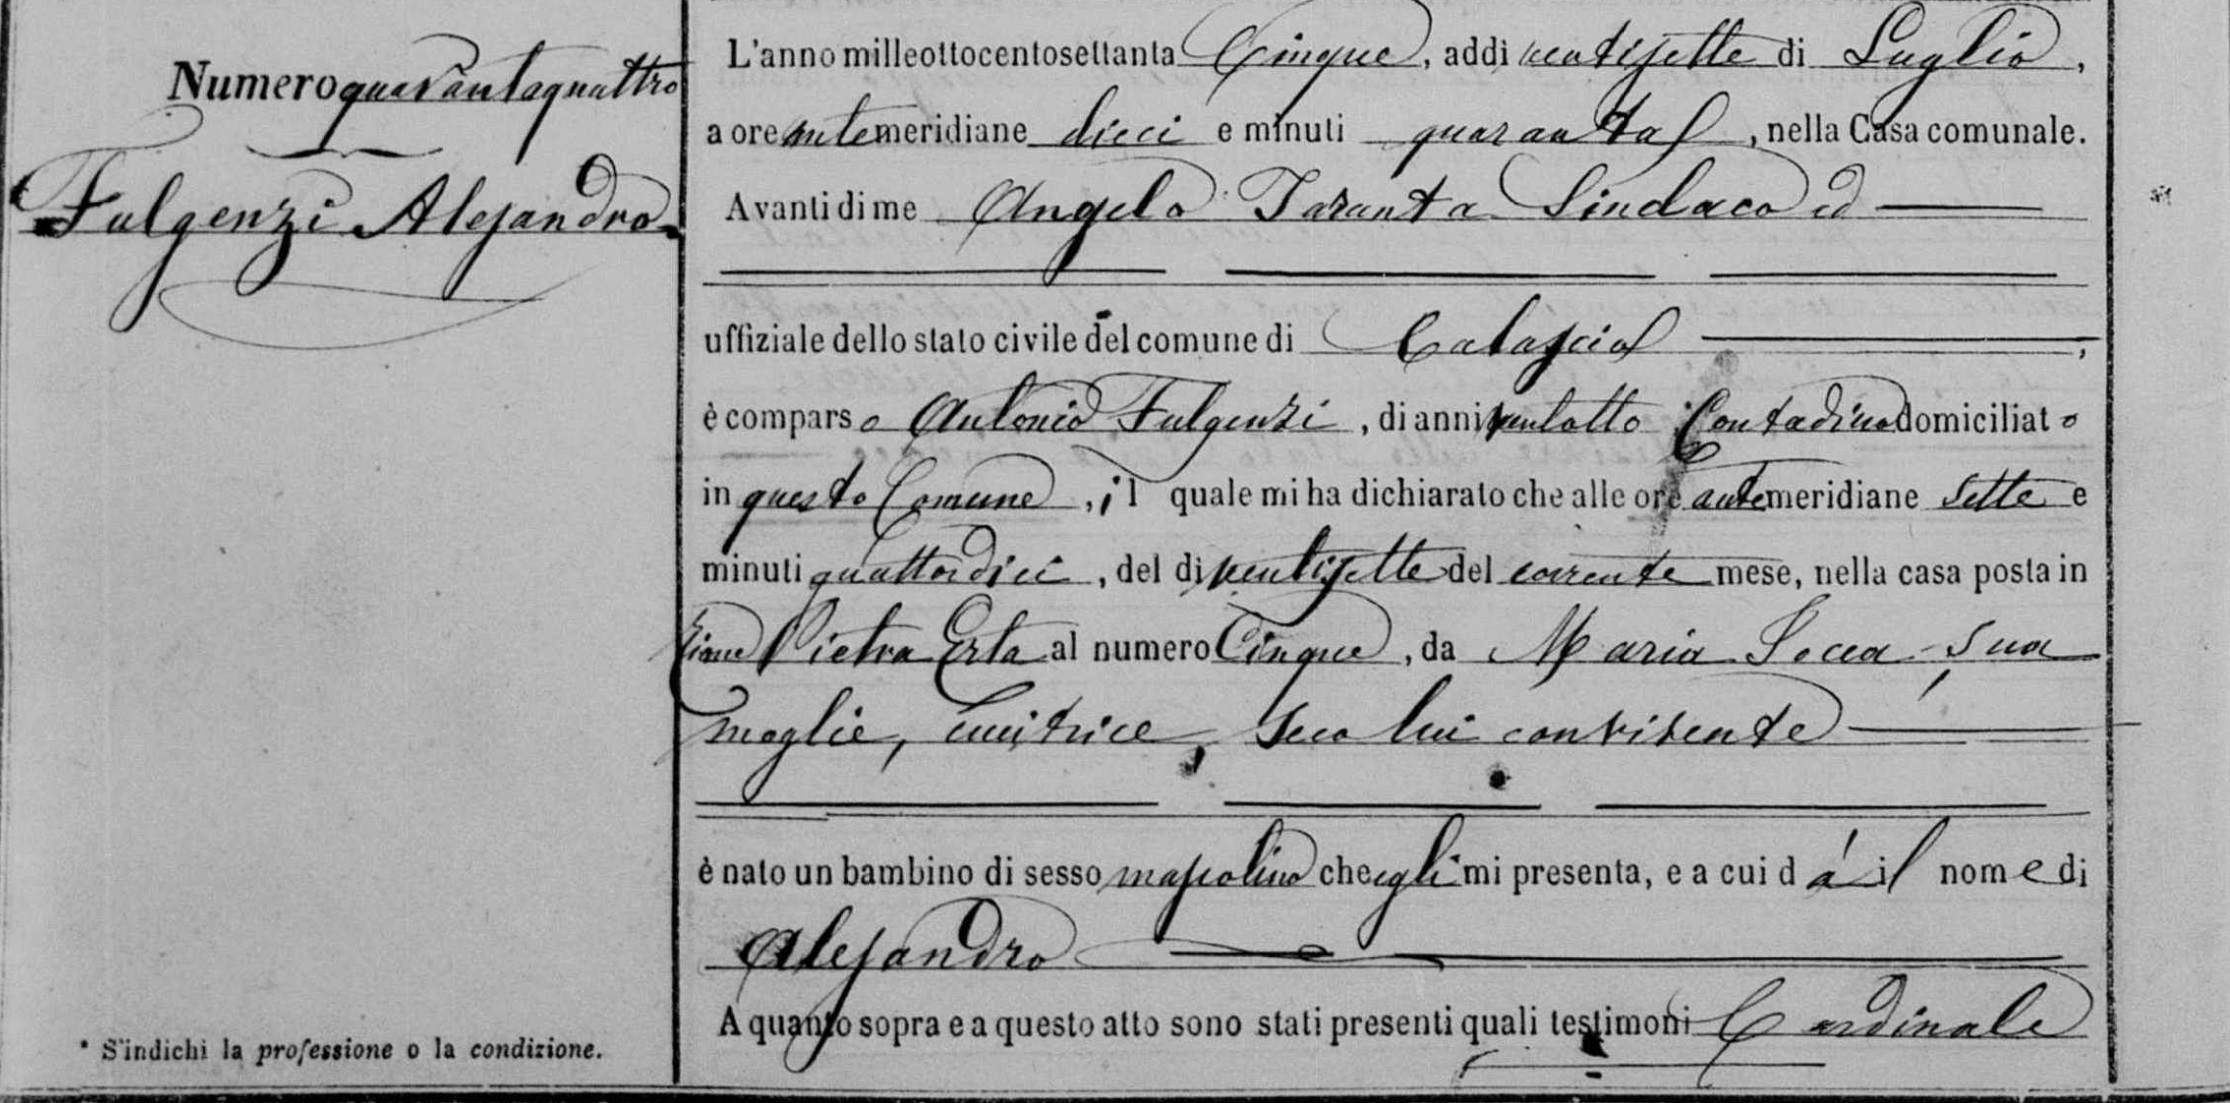 Numero quarantaquattro
Fulgenzi Alessandro
* S'indichi la professione o la condizione.
L'anno milleottocentosettanta Cinque, addì ventisette di Luglio,
a ore antemeridiane dieci e minuti quaranta, nella Casa comunale.
Avanti di me Angelo Taranta Sindaco ed
uffiziale dello stato civile del comune di Calascio,
è comparso Antonio Fulgenzi, di anni ventotto Contadino domiciliato
in questo Comune, il quale mi ha dichiarato che alle ore antemeridiane sette e
minuti quattordici, del dì ventisette del corrente mese, nella casa posta in
Rione Pietra Erta al numero Cinque, da Maria Socca sua
moglie, cucitrice, seco lui convivente
è nato un bambino di sesso mascolino che egli mi presenta, e a cui dà il nome di
Alessandro
A quanto sopra e a questo atto sono stati presenti quali testimoni Cardinale